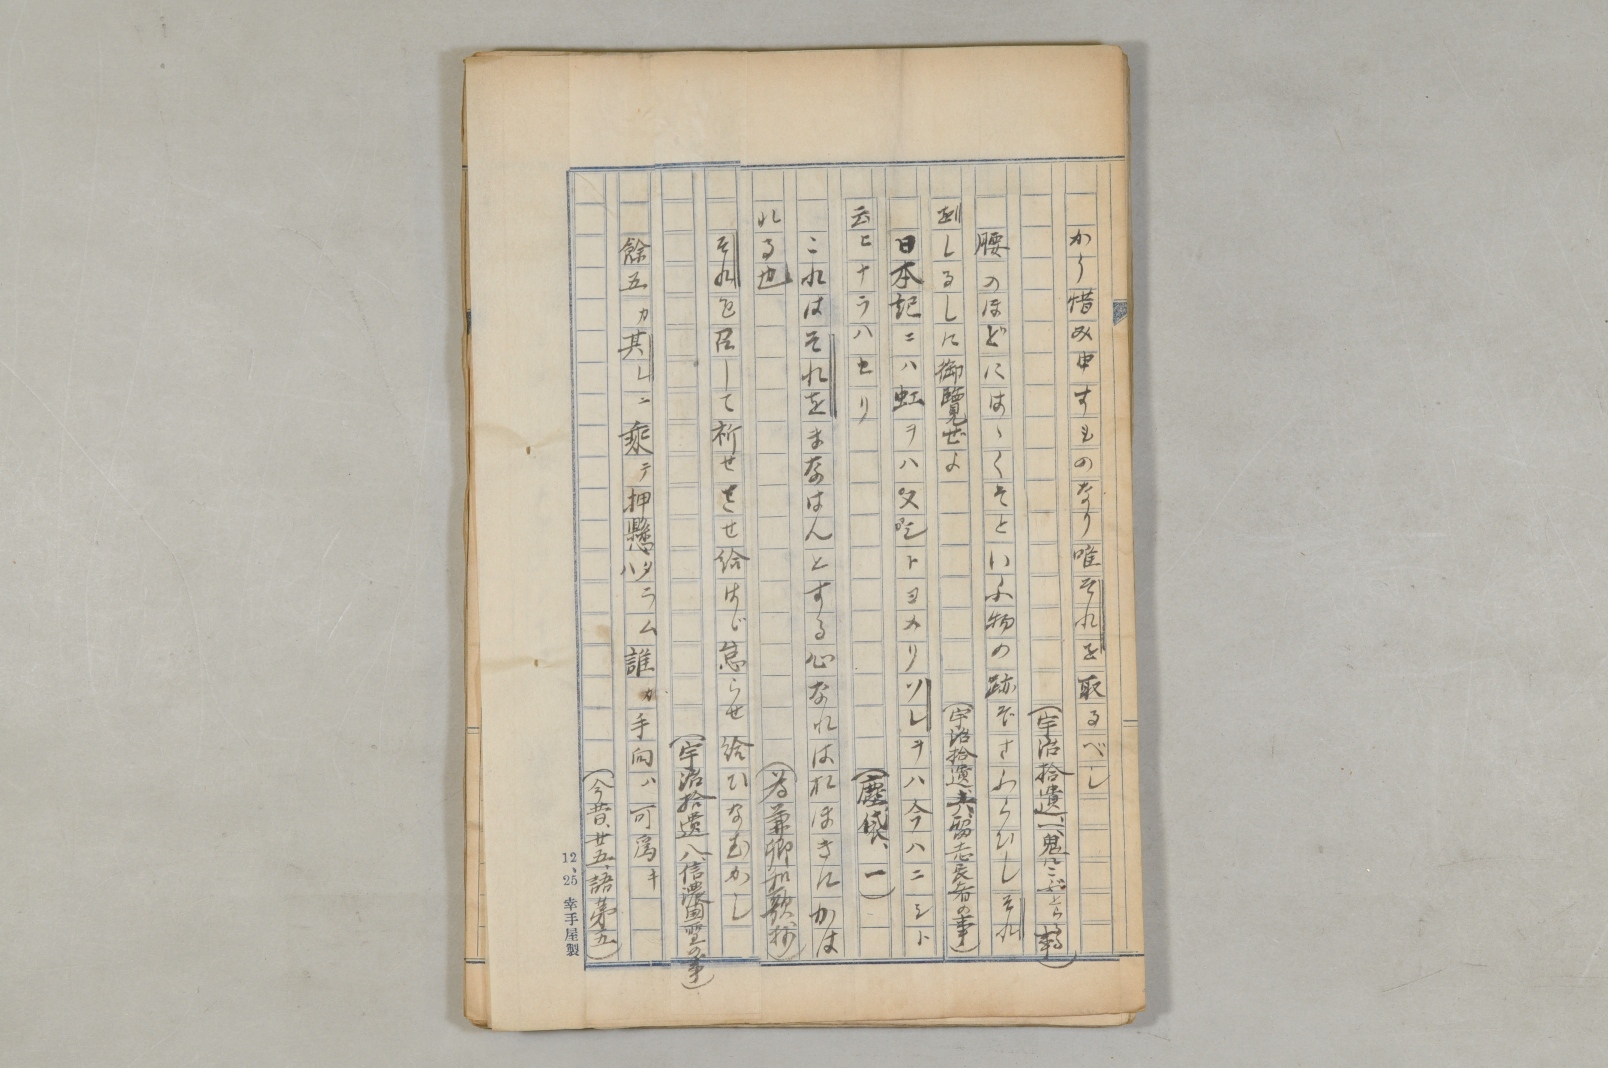 かう惜み申すものなり唯それを取るべし
(宇治拾遺、一、鬼にこぶとらるゝ事)
腰のほどにはゝくそといふ物の跡ぞさふらひしそれ
到しるしに御覧ぜよ
(宇治拾遺、六、留志長者の事)
日本記ニハ虹ヲハヌジトヨメリソレヲハ今ハニシト
云ヒナラハセリ
(塵袋、一)
これはそれをまなはんとする心なれはおほきにかは
れる也
(為兼卿和歌抄)
それを召して祈せさせ給はゞ怠らせ給ひなむかし
(宇治拾遺、八、信濃国聖の事)
餘五カ其レニ乗テ押懸ハタラム誰カ手向ハ可為キ
(今昔、廿五、語第五)
12、25 幸手屋製